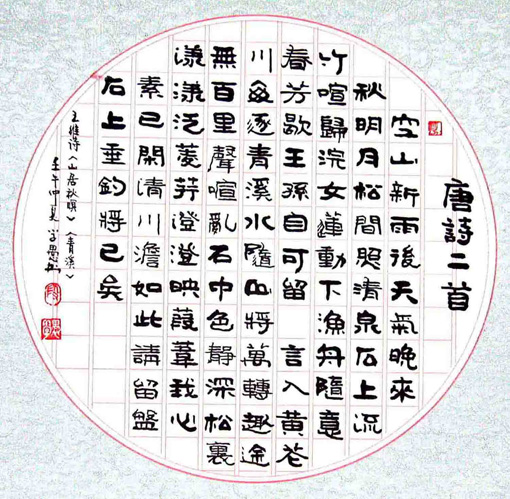 唐詩二首
空山新雨後天氣晚来
秋明月松間照清泉石上流
竹喧歸浣女蓮動下漁舟隨意
春芳歇王孫自可留 言入黄花
川每逐青溪水隨山將萬轉趣途
無百里聲喧亂石中色静深松裏
漾漾泛菱荇澄澄映葭葦我心
素已閑清川澹如此請留盤
石上垂釣將已矣
王維詩《山居秋暝》《青溪》
壬午仲夏